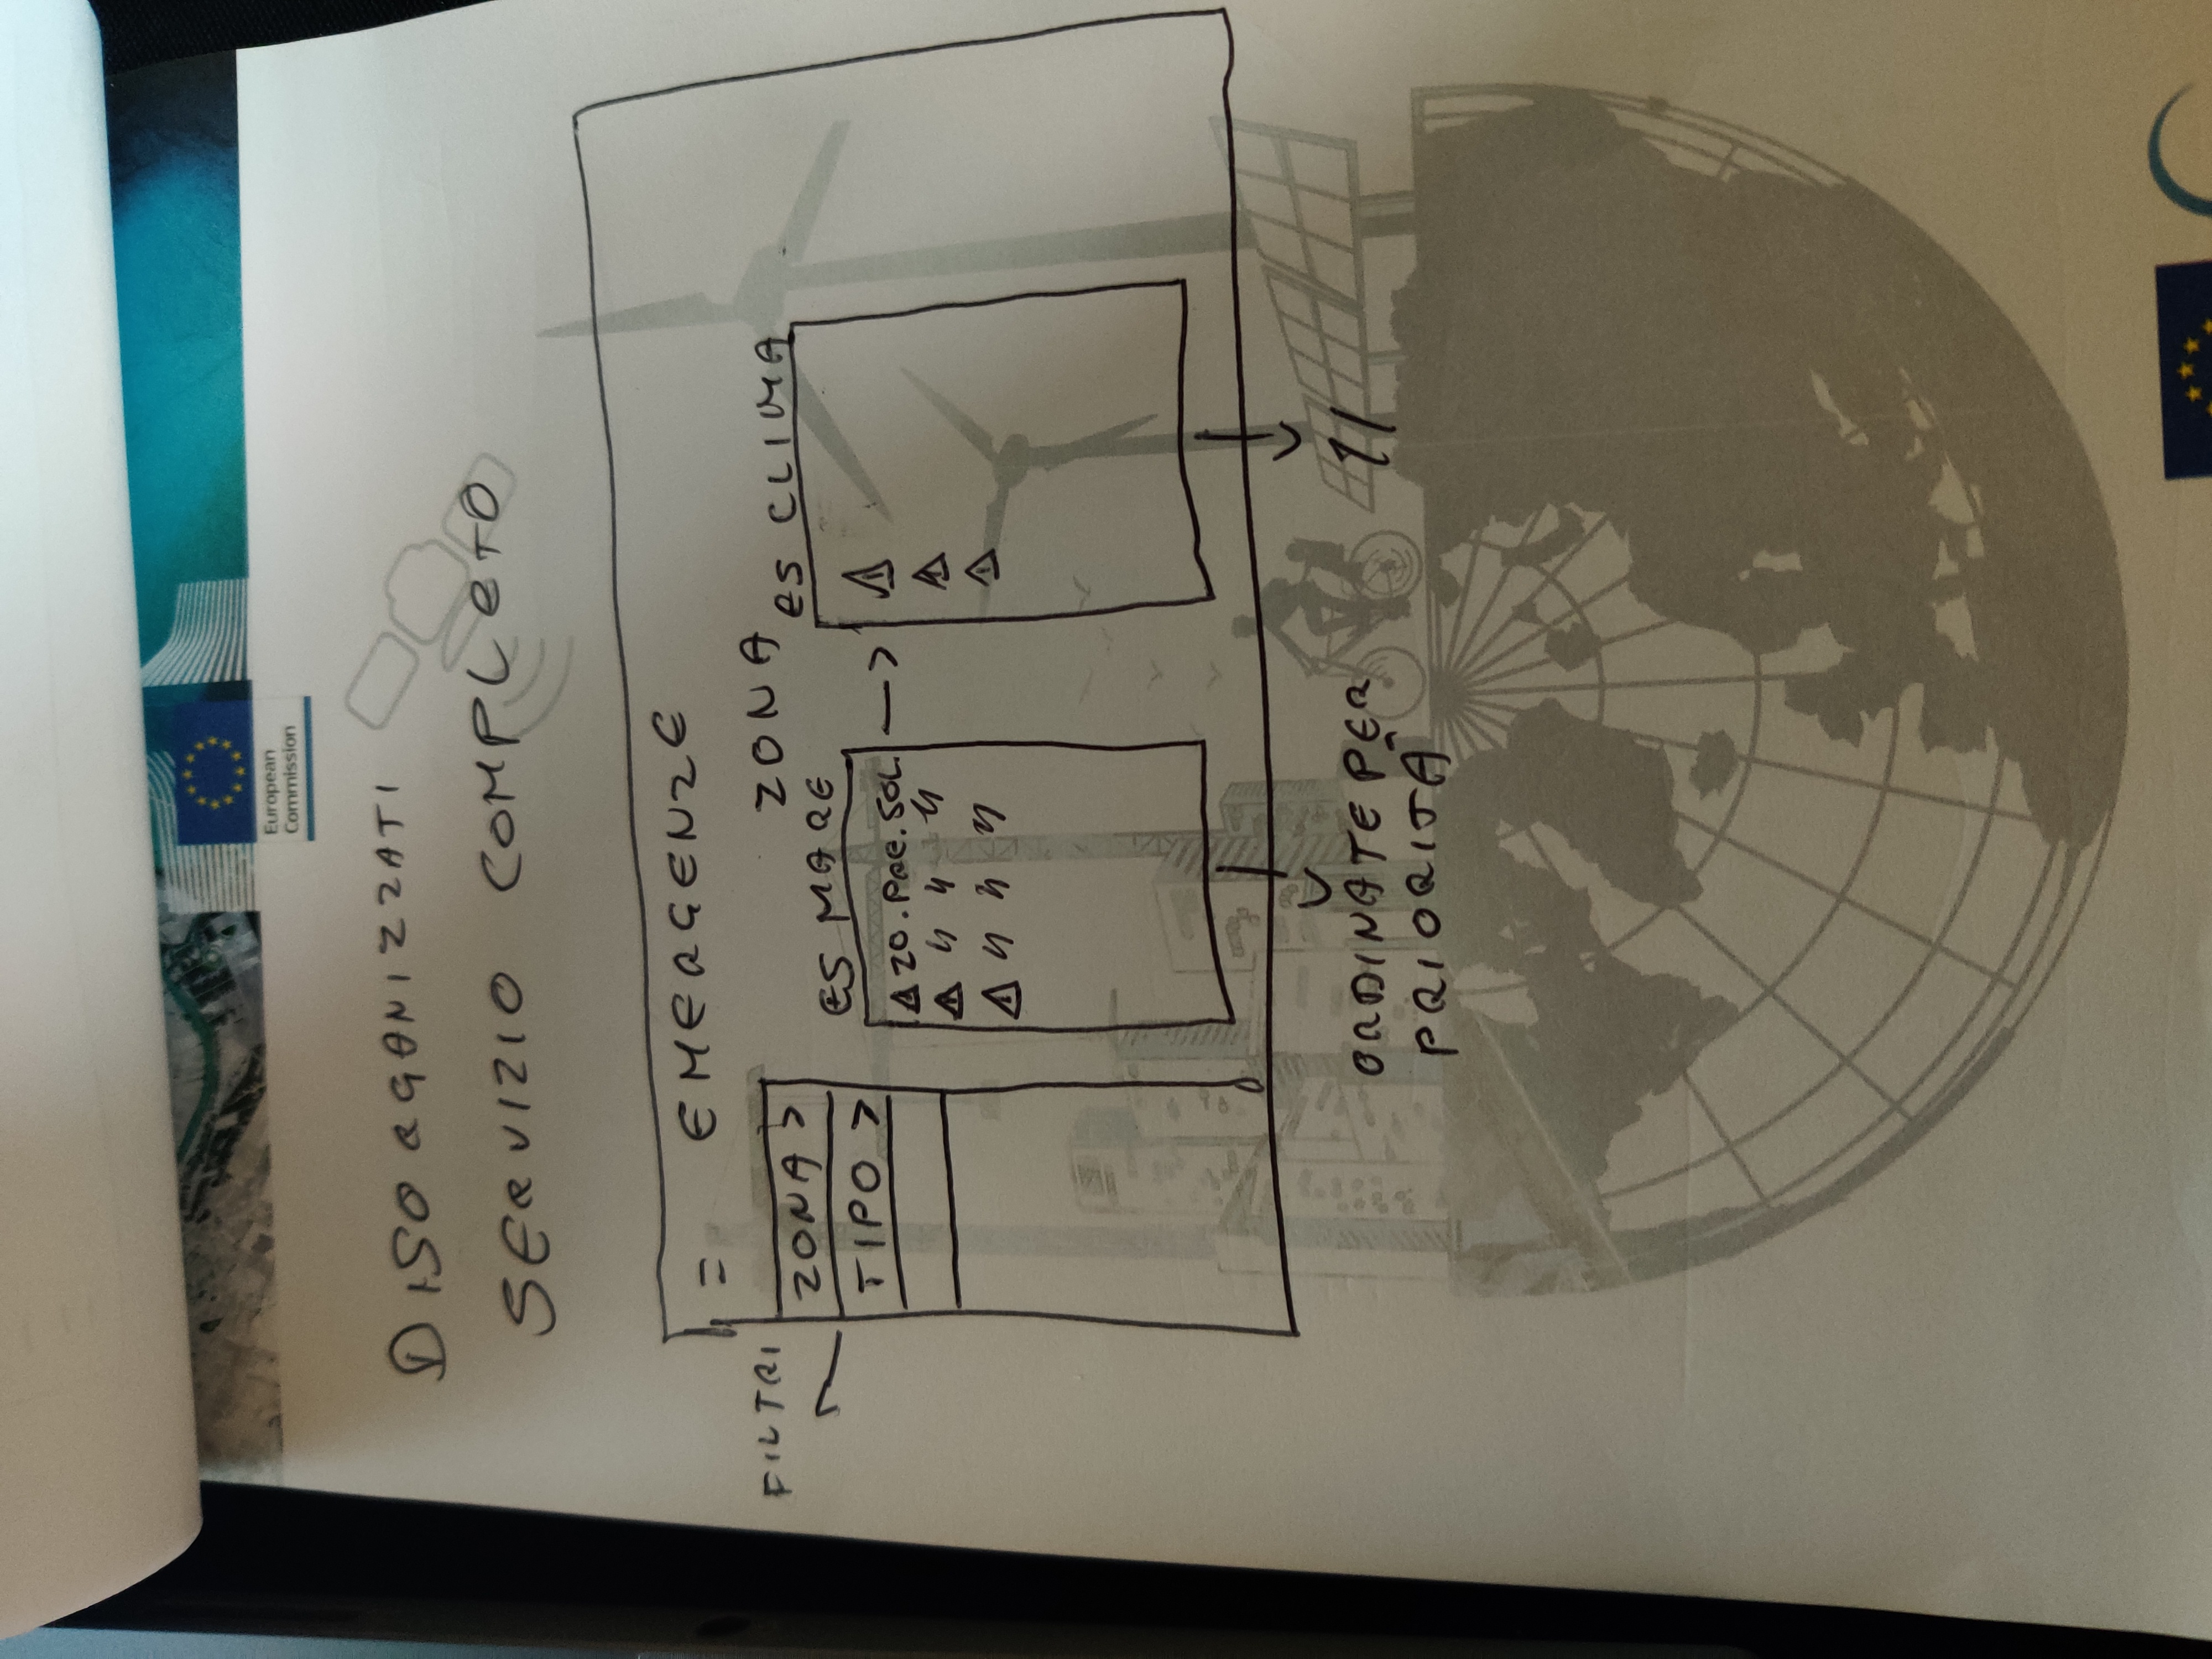 European
Commission
DISORGANIZZATI
SERVIZIO COMPLETO
= EMERGENZE
FILTRI
ZONA >
TIPO >
ZONA
ES MARE
ES CLIMA
ZO. PRE. SOL.
" " "
" " "
ORDINATE PER
PRIORITÀ
"